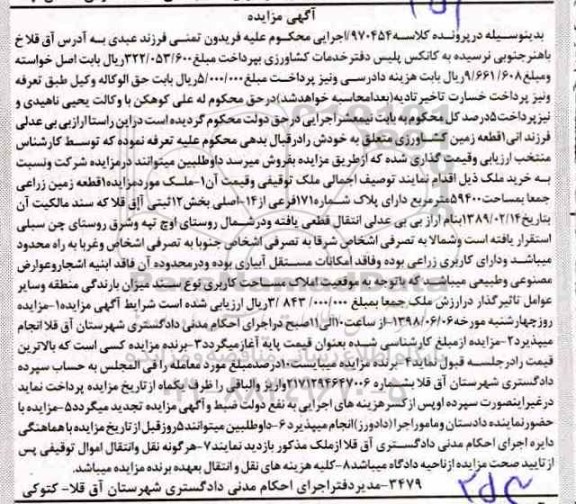 آگهی مزایده
بدینوسیله درپرونده کلاسه ۹۷۰۴۵۴/اجرایی محکوم علیه فریدون تمنی فرزند عبدی به آدرس آق قلا خ
باهنرجنوبی نرسیده به کانکس پلیس دفترخدمات کشاورزی بپرداخت مبلغ ۳۲۲/۰۵۳/۶۰۰ریال بابت اصل خواسته
ومبلغ ۹/۶۶۱/۶۰۸ریال بابت هزینه دادرسی ونیز پرداخت مبلغ ۵/۰۰۰/۰۰۰ریال بابت حق الوکاله وکیل طبق تعرفه
ونیز پرداخت خسارت تاخیر تادیه(بعدامحاسبه خواهدشد)درحق محکوم له علی کوهکن با وکالت یحیی ناهیدی و
نیزپرداخت ۵درصد کل محکوم به بابت نیمعشراجرایی درحق دولت محکوم گردیده است دراین راستا ارازبی بی عدلی
فرزند انی ۱قطعه زمین کشاورزی متعلق به خودش رادرقبال بدهی محکوم علیه تعرفه نموده که توسط کارشناس
منتخب ارزیابی وقیمت گذاری شده که ازطریق مزایده بفروش میرسد داوطلبین میتوانند درمزایده شرکت ونسبت
به خرید ملک ذیل اقدام نمایند توصیف اجمالی ملک توقیفی وقیمت آن ۱-ملک موردمزایده ۱قطعه زمین زراعی
جمعا بمساحت ۵۹۴۰۰مترمربع دارای پلاک شماره ۱۷۱فرعی از ۱۴-اصلی بخش ۱۲ثبتی آق قلا که سند مالکیت آن
بتاریخ ۱۳۸۹/۰۲/۱۴بنام اراز بی بی عدلی انتقال قطعی یافته ودرشمال روستای اوج تپه وشرق روستای چن سبلی
استقرار یافته است وشمالا به تصرفی اشخاص شرقا به تصرفی اشخاص جنوبا به تصرفی اشخاص وغربا به راه محدود
میباشد ودارای کاربری زراعی بوده وفاقد امکانات مستقل آبیاری بوده ودرمحدوده آن فاقد ابنیه اشجاروعوارض
مصنوعی وطبیعی میباشد که باتوجه به موقعیت املاک مساحت کاربری نوع سند میزان بارندگی منطقه وسایر
عوامل تاثیرگذار درارزش ملک جمعا بمبلغ ۳/۸۴۳/۰۰۰/۰۰۰ریال ارزیابی شده است شرایط آگهی مزایده ۱-مزایده
روزچهارشنبه مورخه ۱۳۹۸/۰۶/۰۶-از ساعت ۱۰الی ۱۱صبح دراجرای احکام مدنی دادگستری شهرستان آق قلا انجام
میپذیرد ۲-مزایده ازمبلغ کارشناسی شده بعنوان قیمت پایه آغاز میگردد ۳-برنده مزایده کسی است که بالاترین
قیمت رادرجلسه قبول نماید ۴-برنده مزایده میبایست ۱۰درصدمبلغ مورد معامله را فی المجلس به حساب سپرده
دادگستری شهرستان آق قلا بشماره ۲۱۷۱۲۹۴۶۴۷۰۰۶واریز والباقی را ظرف یکماه از تاریخ مزایده پرداخت نماید
درغیراینصورت سپرده اوپس از کسرهزینه های اجرایی به نفع دولت ضبط و آگهی مزایده تجدید میگردد ۵-مزایده با
حضورنماینده دادستان وماموراجرا(دادورز)انجام میپذیرد ۶-داوطلبین میتوانند ۵روزقبل از تاریخ مزایده با هماهنگی
دایره اجرای احکام مدنی دادگستری آق قلا ازملک مذکور بازدید نمایند ۷-هرگونه نقل وانتقال اموال توقیفی پس
از تایید صحت مزایده ازناحیه دادگاه میباشد ۸-کلیه هزینه های نقل و انتقال بعهده برنده مزایده میباشد.
۳۴۷۹-مدیر دفتر اجرای احکام مدنی دادگستری شهرستان آق قلا- کتوکی